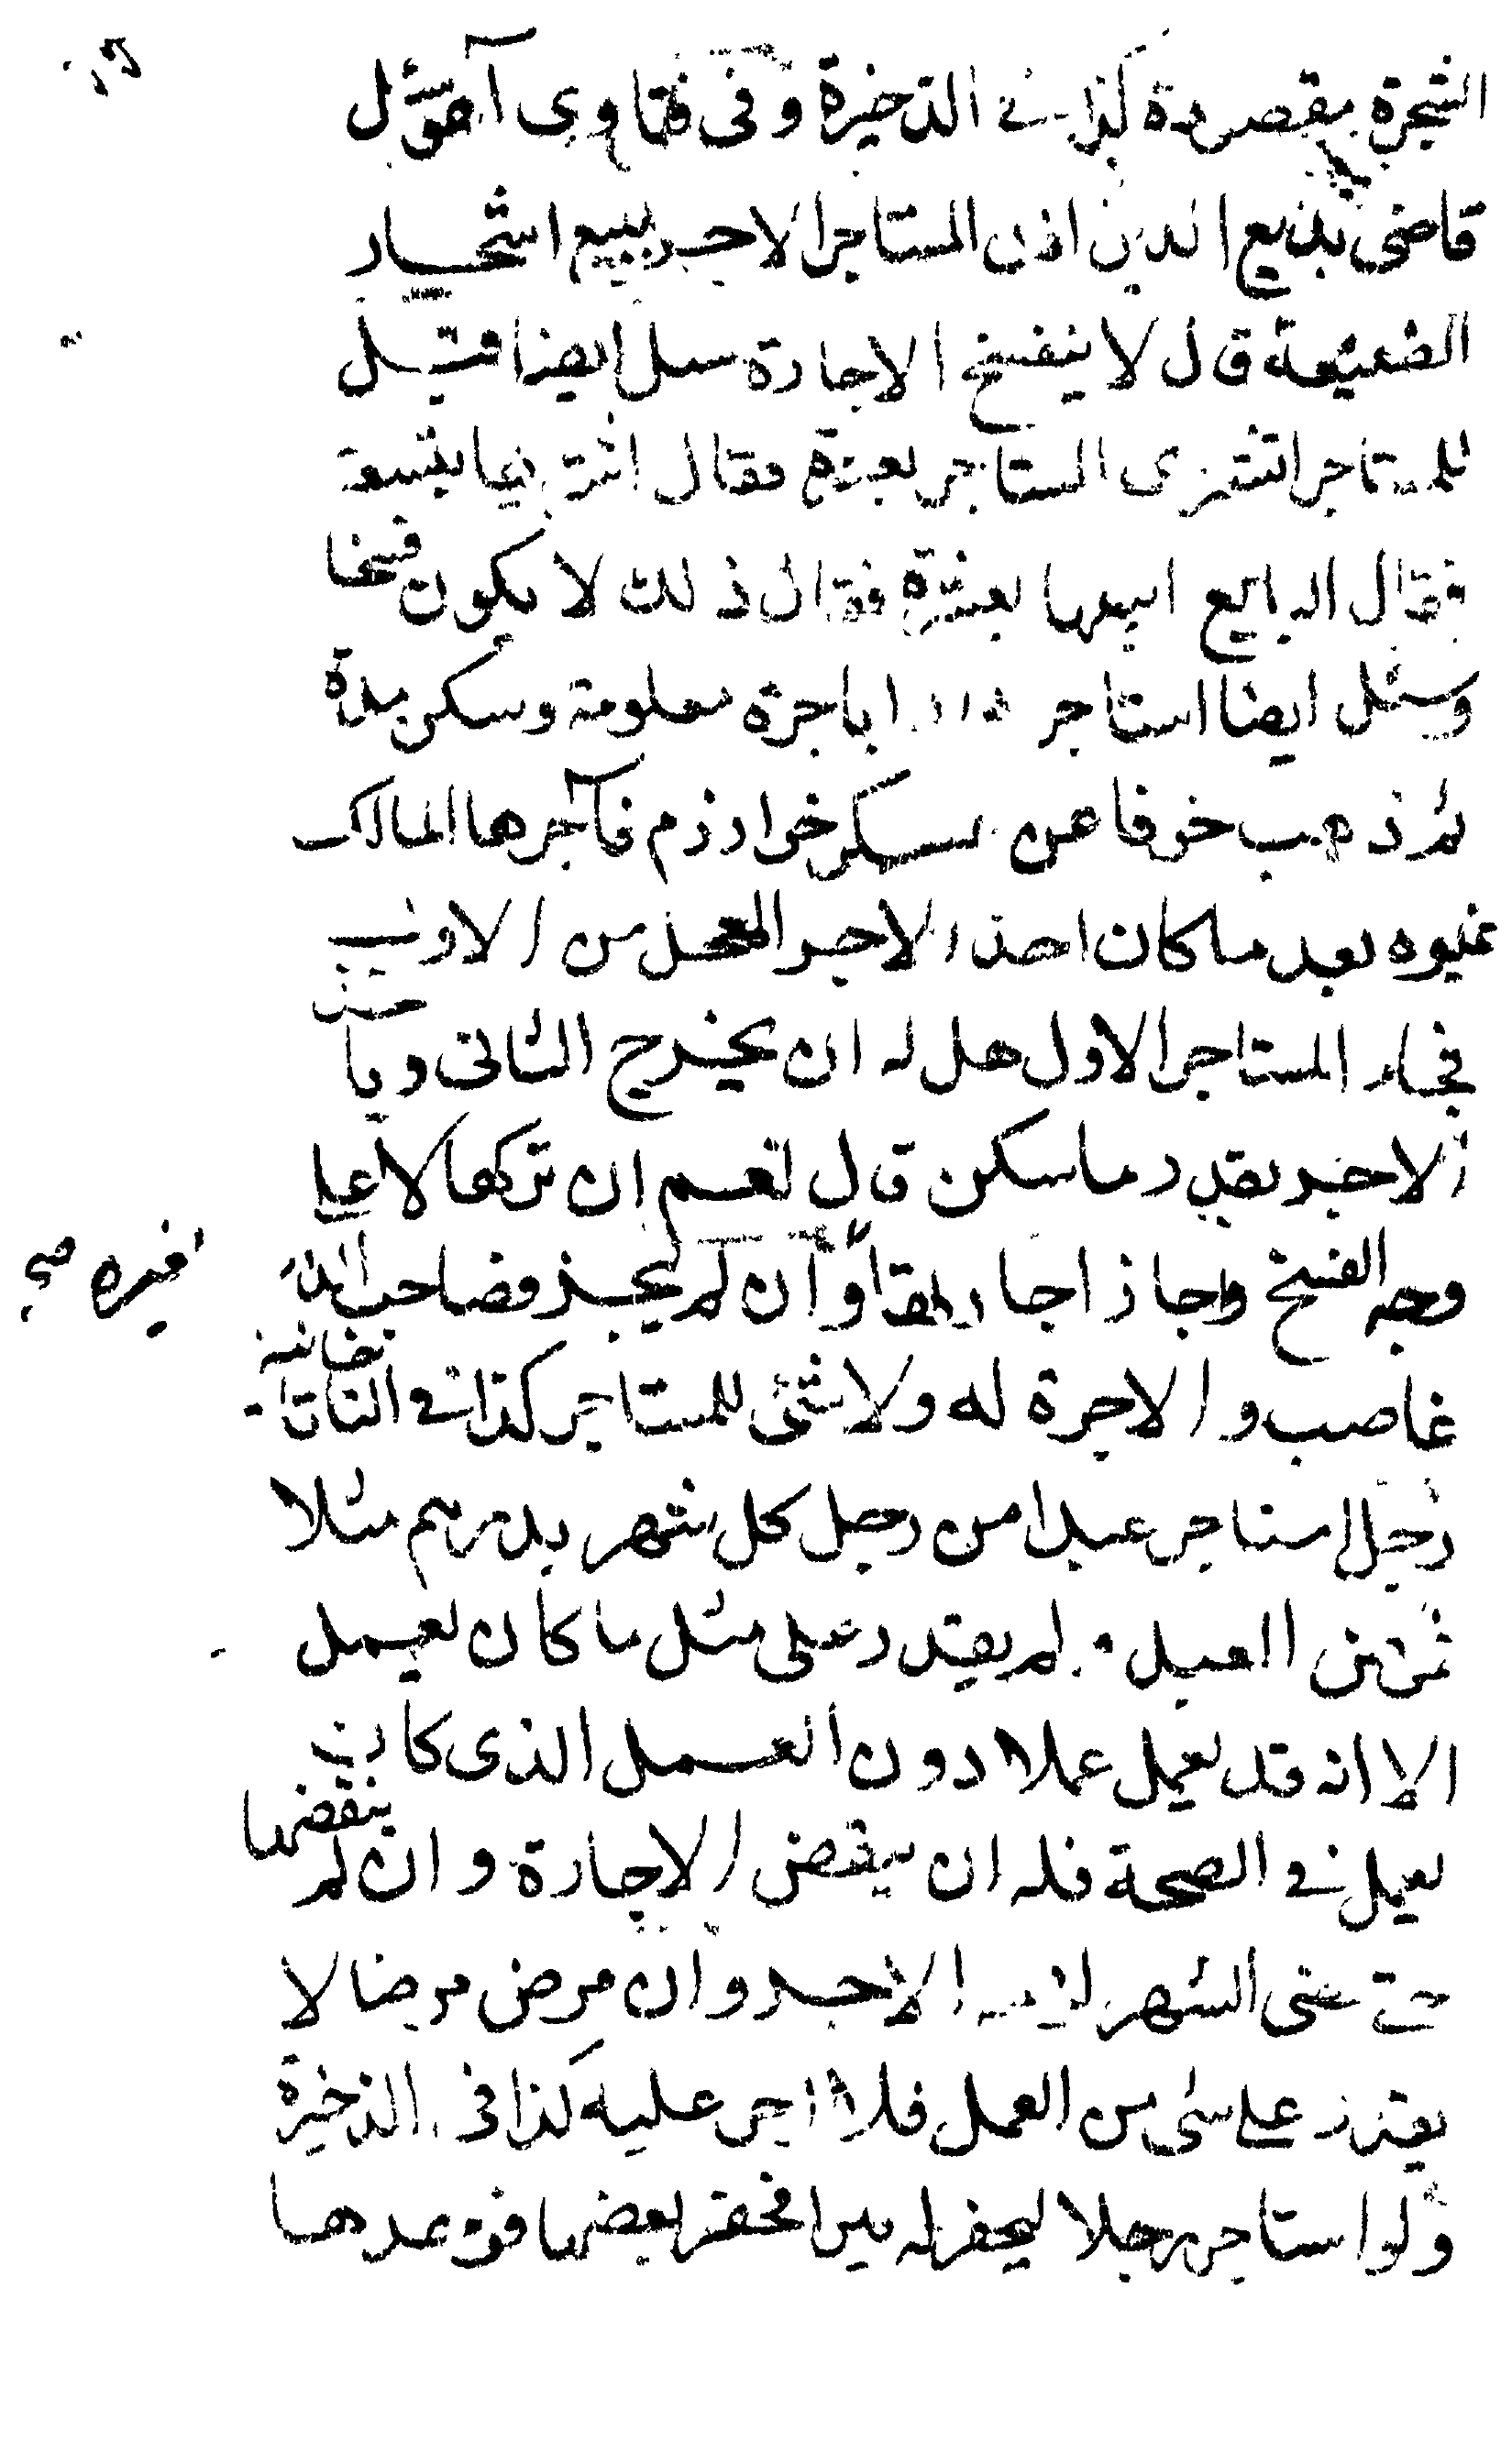 الشجرة مقصودة كذا في الذخيرة وفي فتاوى آهو سئل
قاضي بديع الدين اذن المستاجر الاجر ببيع اشجار
الضيعة قال لا ينفسخ الاجارة سئل ايضا قيل
للمستاجر اتشترى المستاجر بعشرة فقال اشتريها بتسعة
فقال البايع ابيعها بعشرة فقال ذلك لا يكون فسخا
وسئل ايضا استاجر دارا باجرة معلومة وسكن مدة
ثم ذهب خوفا عن عسكر خوارزم فآجرها المالك
غيره بعد ما كان اخذ الاجر المعجل من الاول
فجاء المستاجر الاول هل له ان يخرج الثاني وياخذ
الاجر بقدر ما سكن قال نعم ان تركها لا على
وجه الفسخ واجاز اجارتها وان لم يجز فصاحب الدار
غاصب والاجرة له ولا شئ للمستاجر كذا في التاتارخانية
رجل استاجر عبدا من رجل كل شهر بدرهم مثلا
ثم مرض العبد ولم يقدر على مثل ما كان يعمل
الا انه قد يعمل عملا دون العمل الذي كان
يعمل في الصحة فله ان ينقض الاجارة وان لم ينقضها
حتى مضى الشهر لزمه الاجر وان مرض مرضا لا
يقدر على شئ من العمل فلا اجر عليه كذا في الذخيرة
ولو استاجر رجلا ليحفر له بيرا فحفر بعضها فوجدها